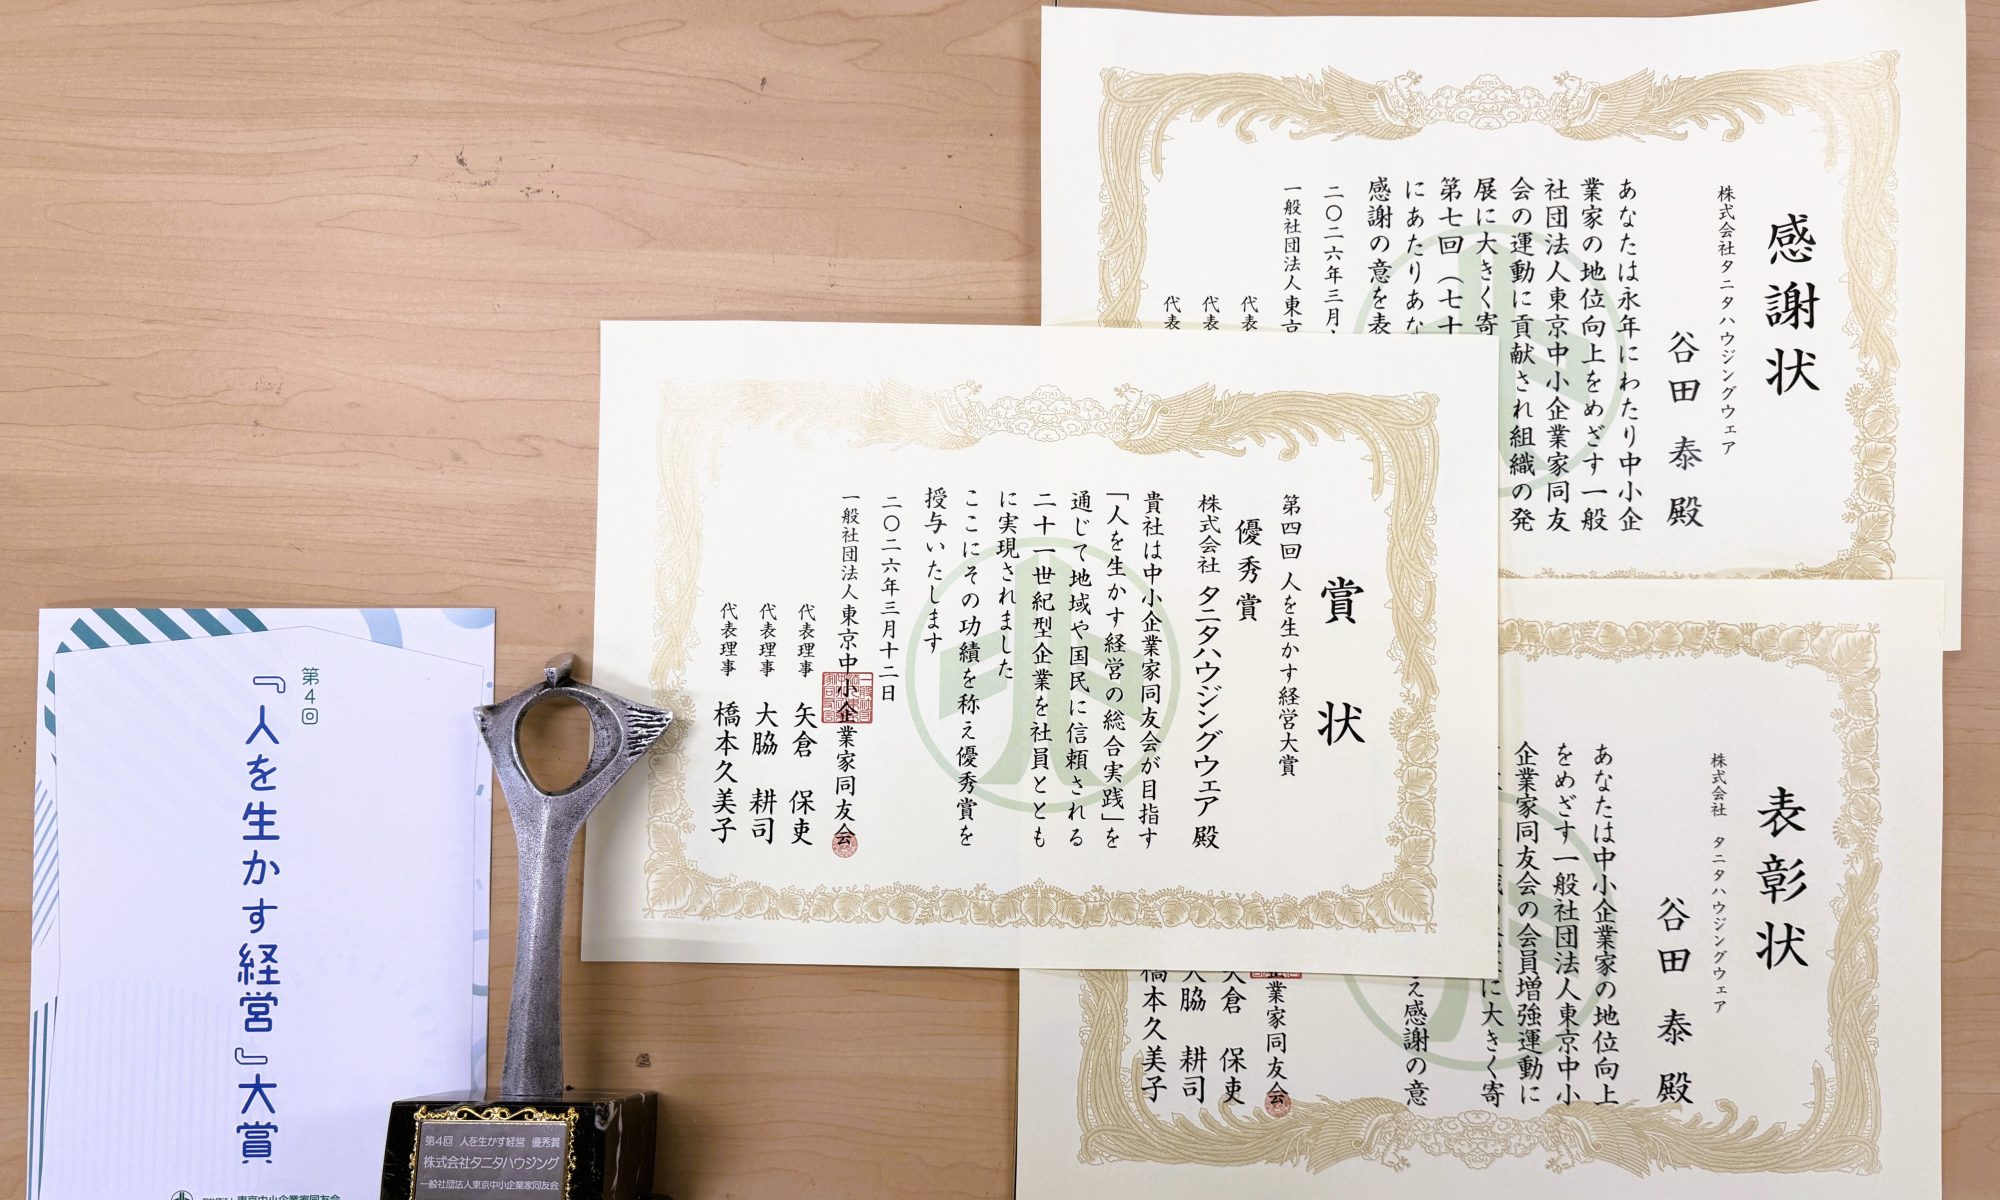 感謝状
株式会社タニタハウジングウェア
谷田 泰 殿
あなたは永年にわたり中小企
業家の地位向上をめざす一般
社団法人東京中小企業家同友
会の運動に貢献され組織の発
展に大きく寄
第七回(七十
にあたりあな
感謝の意を表
二〇二六年三月
一般社団法人東京
代表
代表
代表
賞状
第四回 人を生かす経営大賞
優秀賞
株式会社 タニタハウジングウェア 殿
貴社は中小企業家同友会が目指す
「人を生かす経営の総合実践」を
通じて地域や国民に信頼される
二十一世紀型企業を社員ととも
に実現されました
ここにその功績を称え優秀賞を
授与いたします
二〇二六年三月十二日
一般社団法人東京中小企業家同友会
代表理事 矢倉 保吏
代表理事 大脇 耕司
代表理事 橋本久美子
表彰状
株式会社 タニタハウジングウェア
谷田 泰 殿
あなたは中小企業家の地位向上
をめざす一般社団法人東京中小
企業家同友会の会員増強運動に
に大きく寄
え感謝の意
企業家同友会
矢倉 保吏
大脇 耕司
橋本久美子
第4回
『人を生かす経営』大賞
東京中小企業家同友会
第4回 人を生かす経営 優秀賞
株式会社タニタハウジング
一般社団法人東京中小企業家同友会